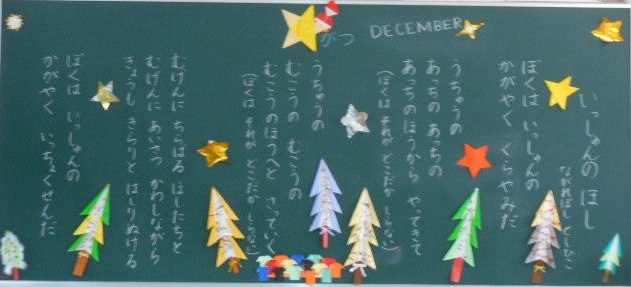 がつ DECEMBER
いっしゅんの ほし
ながれぼし としひこ
ぼくは いっしゅんの
かがやく くらやみだ
うちゅうの
あっちの あっちの
あっちのほうから やってきて
(ぼくは それが どこだか しらない)
うちゅうの
むこうの むこうの
むこうのほうへと さっていく
(ぼくは それが どこだか しらない)
むげんに ちらばる ほしたちと
むげんに あいさつ かわしながら
きょうも きらりと はしりぬける
ぼくは いっしゅんの
かがやく いっちょくせんだ